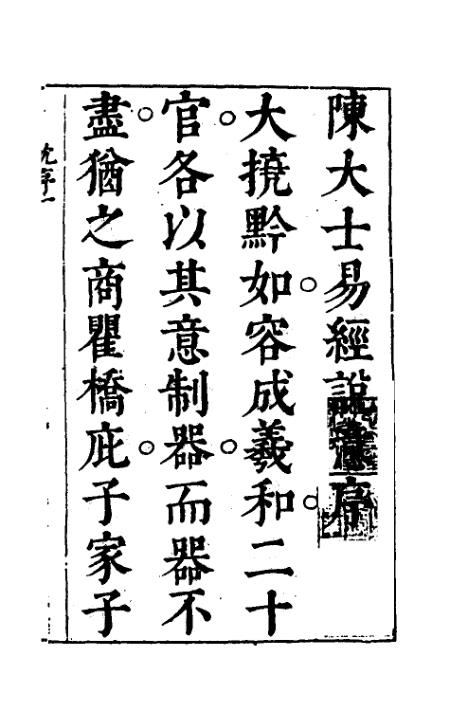 陳大士易經說意序
大撓黔如容成羲和二十
官各以其意制器而器不
盡猶之商瞿橋庇子家子
沈序一